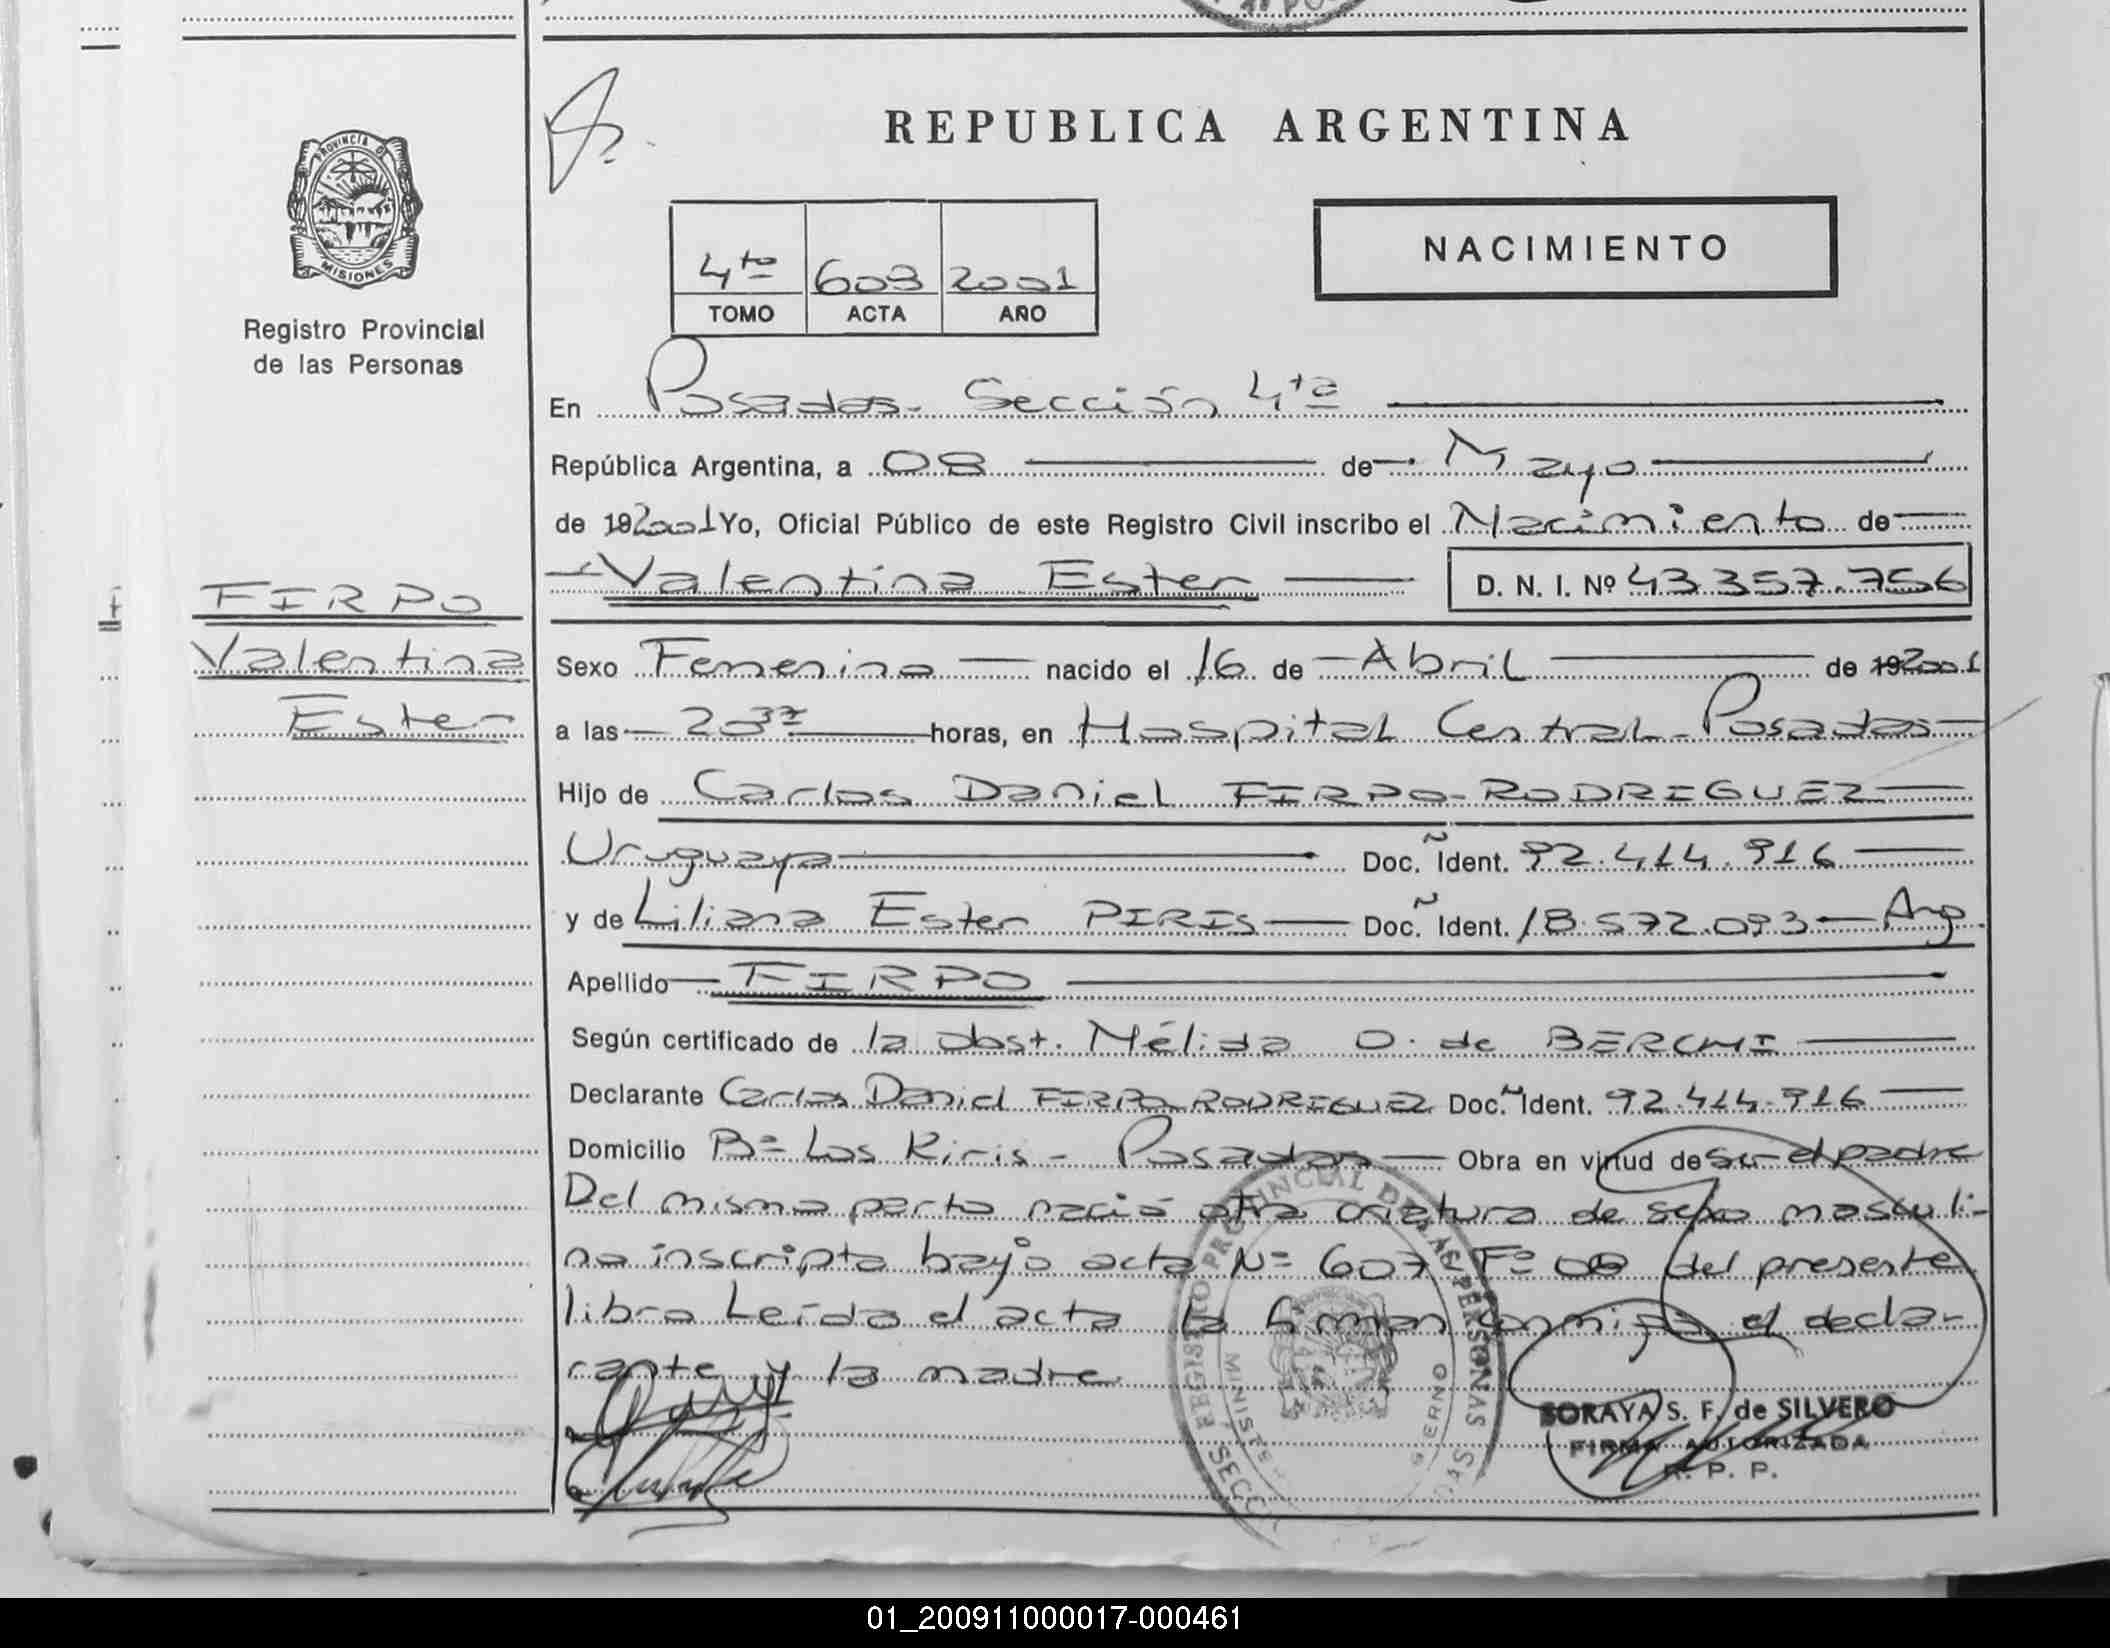 REPUBLICA ARGENTINA
PROVINCIA D
MISIONES
Registro Provincial
de las Personas
NACIMIENTO
4to 2001
TOMO ACTA AÑO
En Posadas- Sección 4ta
República Argentina, a 08 de Mayo
de 192001 Yo, Oficial Público de este Registro Civil inscribo el Nacimiento de
Valentina Ester D. N. I. Nº 43.357.756
FIRPO
Valentina
Ester
Sexo Femenino nacido el 16 de Abril de 192001
a las 2037 horas, en Hospital Central-Posadas
Hijo de Carlos Daniel FIRPO-RODRIGUEZ
Uruguayo Doc. Ident. 92.414.916
y de Liliana Ester PIRIS Doc. Ident. 18.572.093 Arg.
Apellido FIRPO
Según certificado de la obst. Nélida O. de
Declarante Carlos Daniel FIRPO RODRIGUEZ Doc. Ident. 92.414.916
Domicilio Bº Los Kiris - Posadas Obra en virtud de ser el padre
Del mismo parto nació otra criatura de sexo masculi-
no inscripta bajo acta Nº 607 Fº del presente
libro Leída el acta la firman conmigo el decla-
rante y la madre
REGISTRO PROVINCIAL DE LAS PERSONAS
SORAYA S. F. de SILVERO
FIRMA AUTORIZADA
R. P. P.
01_200911000017-000461